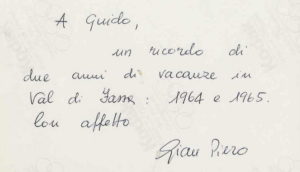 A Guido,
un ricordo di
due anni di vacanze in
Val di Fassa : 1964 e 1965.
Con affetto
Gian Piero